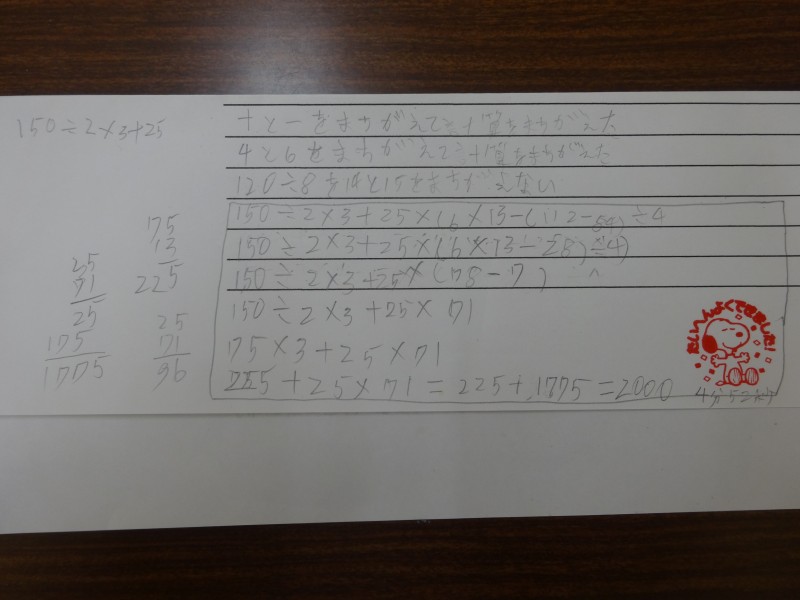 150÷2×3+25
+と-をまちがえて計算をまちがえた
4と6をまちがえて計算をまちがえた
120÷8を14と15をまちがえない
150÷2×3+25×(6×13-(112-84)÷4
150÷2×3+25×(6×13-28)÷4)
150÷2×3+25×(78-7)
150÷2×3+25×71
75×3+25×71
225+25×71=225+1775=2000
75
13
225
25
71
25
175
1775
25
71
96
たいへんよくできました!
4分52秒